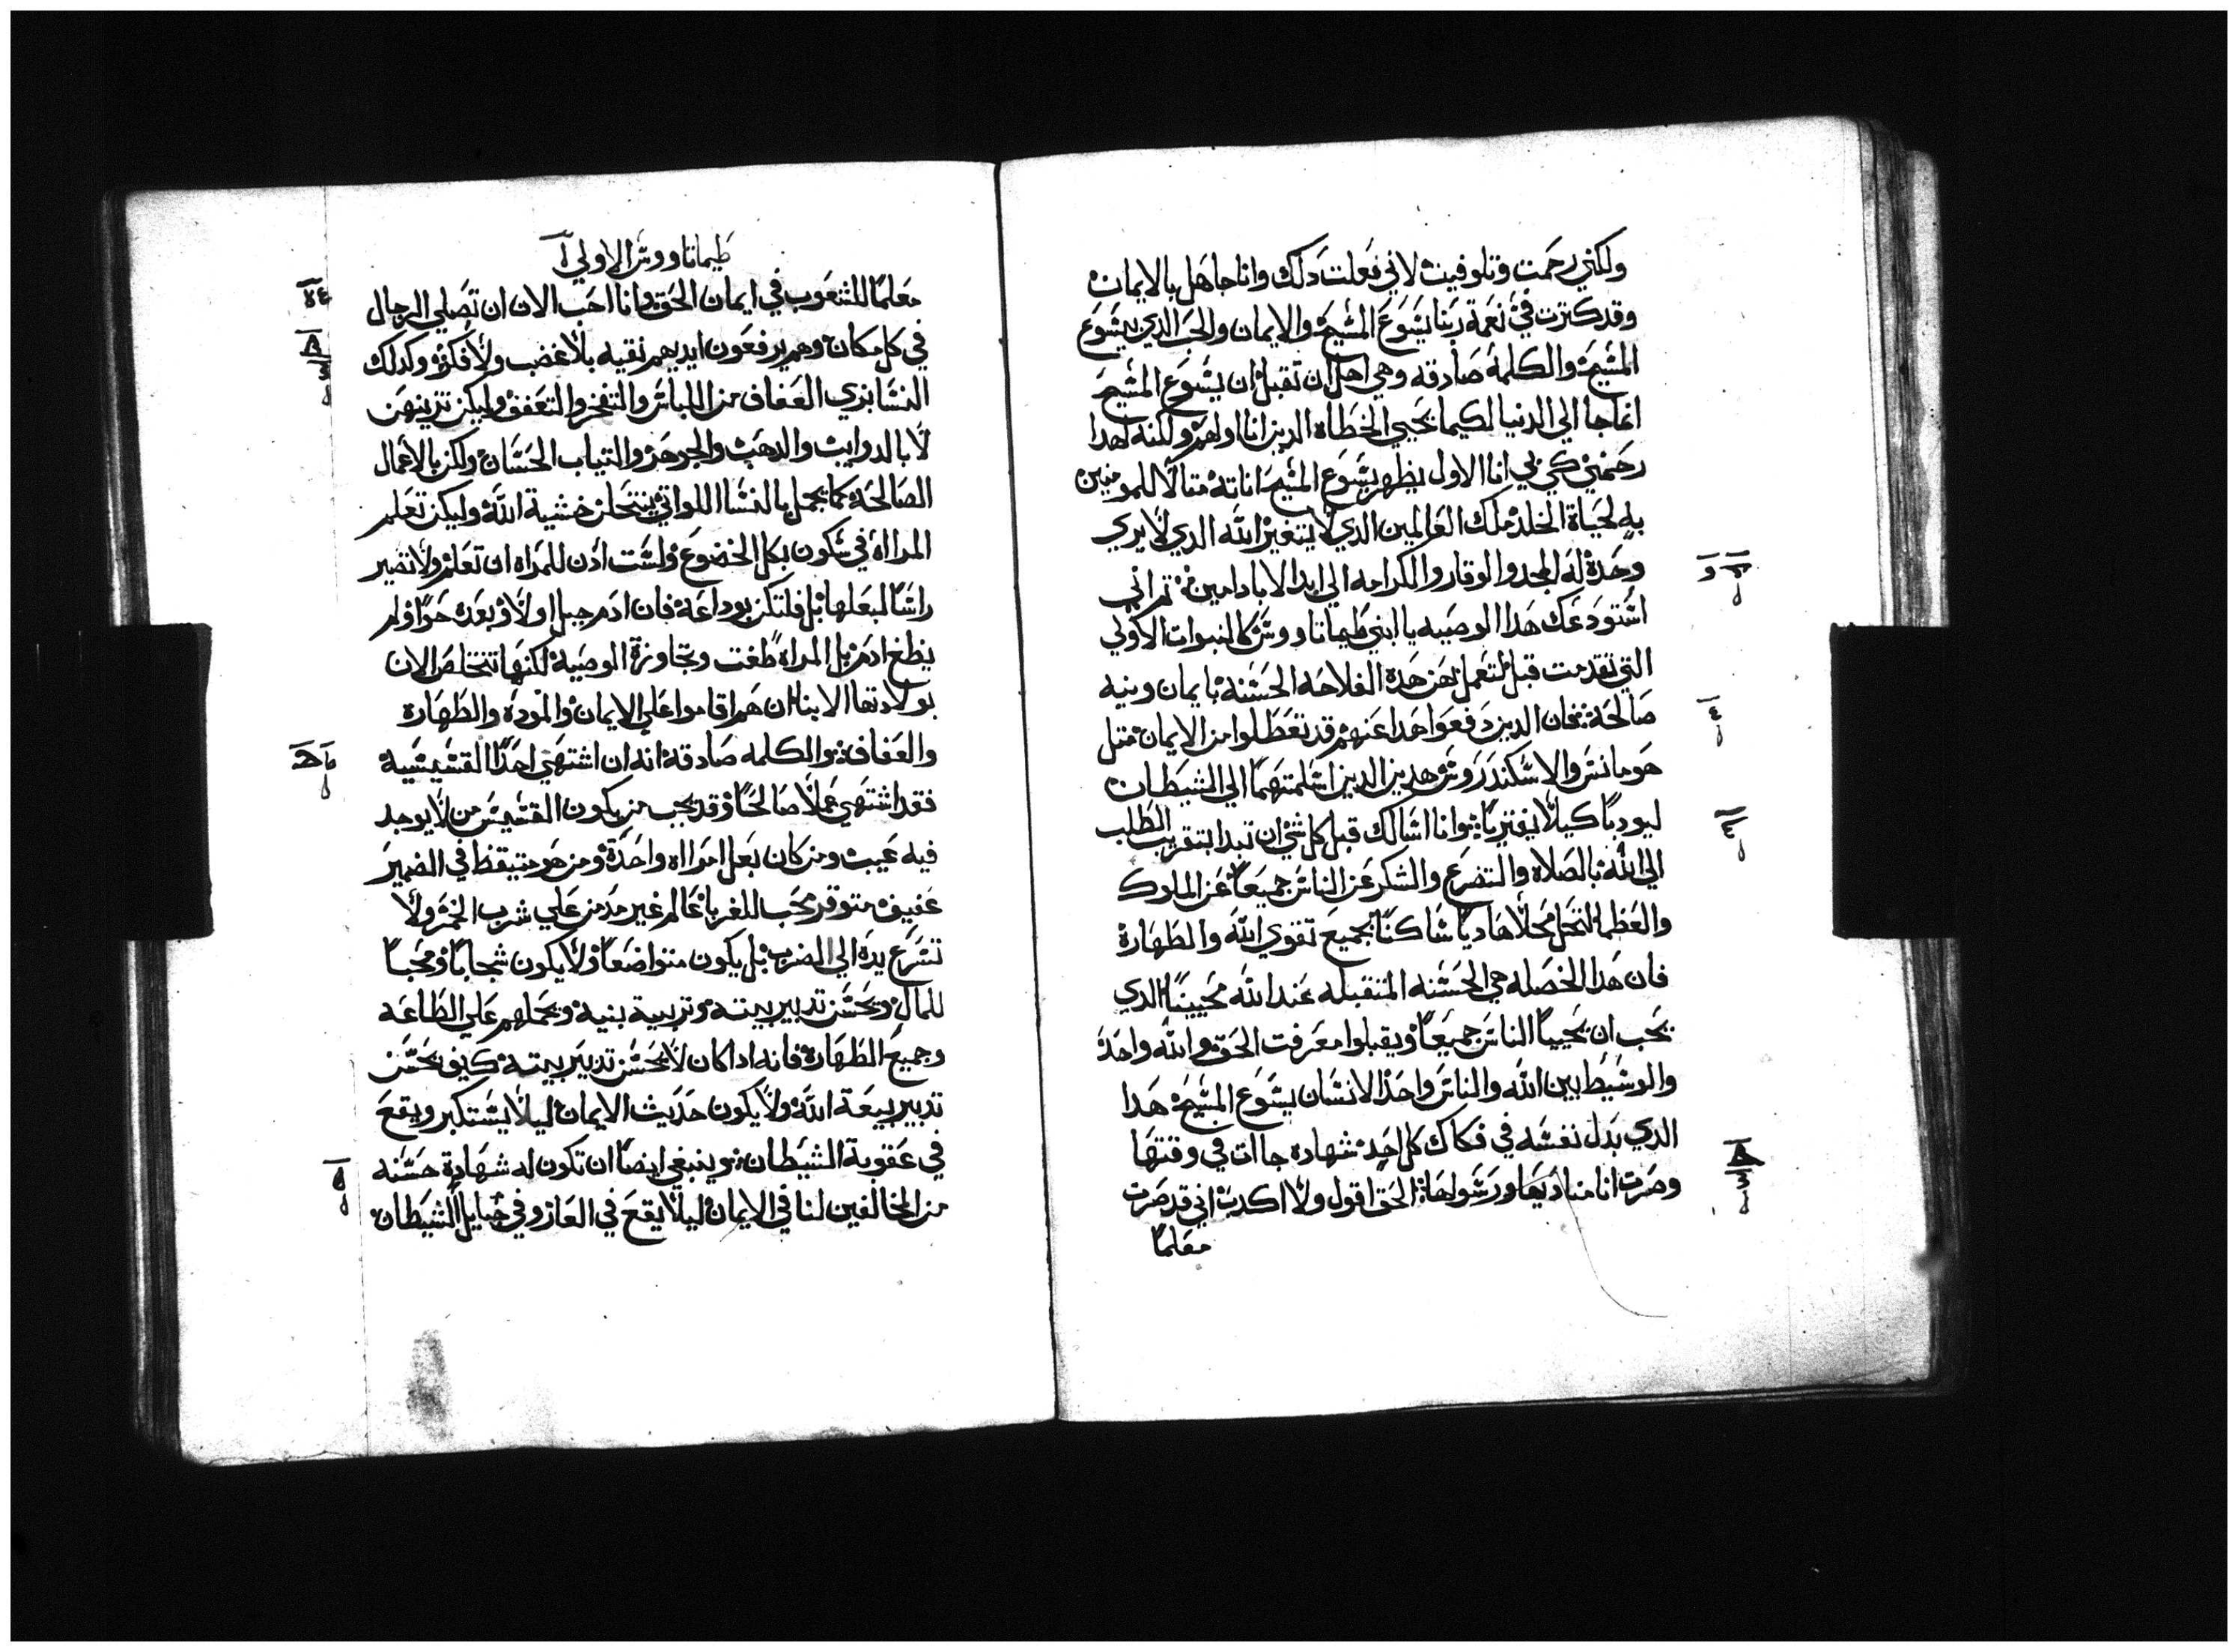 ولكني رحمت وتلوفيت لاني فعلت دلك وانا جاهل بالايمان
وقد كترت في نعمة ربنا يسوع المسيح والايمان والحب الدي بيسوع
المسيح والكلمة صادقه وهي اهل ان تقبل ان يسوع المسيح
انما جا الي الدنيا لكيما يحيي الخطاه الدين انا اولهم ولكنه لهدا
رحمني كي بي انا الاول يظهر يسوع المسيح اناته متالا للمومنين
به لحياة الخلد ملك العالمين الدي لا يتغير الله الدي لا يري
وحدة له المجد والوقار والكرامه الي ابد الاباد امين تم اني
استودعك هدا الوصيه يا ابني طيماتاووس كالنبوات الاولي
التي تقدمت قبل لتعمل بهن هدة الفلاحه الحسنة بايمان ونيه
صالحة فان الدين دفعوا هدا عنهم قد تعطلوا من الايمان متل
هومانس والاسكندروس هدين الدين اسلمتهما الي الشيطان
ليودبا كيلا يفتريا وانا اسالك قبل كل شي ان تبدا بتقريب الطلب
الي الله بالصلاه والتضرع والشكر عن الناس جميعا عن الملوك
والعظما لنحل محلا هاديا ساكنا بجميع تقوي الله والطهارة
فان هدا الخصله هي الحسنه المتقبله عند الله محيينا الدي
يحب ان يحييا الناس جميعا ويقبلوا معرفت الحق والله واحد
والوسيط بين الله والناس واحد الانسان يسوع المسيح هدا
الدي بدل نفسه في فكاك كل احد شهاده جاات في وقتها
وصرت انا مناديها ورسولها الحق اقول ولا اكدب اني قد صرت
معلما
طيماتاووس الاولي
معلما للشعوب في ايمان الحق وانا احب الان ان تصلي الرجال
في كل مكان وهم يرفعون ايديهم نقيه بلا غضب ولا فكر وكدلك
النسا بزي العفاف من اللباس والتفخر والتعفف وليكن تزينهن
لا بالدوايب والدهب والجوهر والتياب الحسان ولكن بالاعمال
الصالحة كما يجمل بالنسا اللواتي ينتحلن خشية الله وليكن تعلم
المراة في سكون بكل الخضوع ولست ادن للمراه ان تعلم ولا تصير
راسا لبعلها بل فلتكن بوداعة فان ادم جبل اولا وبعدة حوا ولم
يطع ادم بل المراه طغت وتجاوزة الوصية لكنها تتخلص الان
بولادتها الابنا ان هم اقاموا علي الايمان والمودة والطهارة
والعفاف والكلمه صادقة انه ان اشتهي احدا القسيسية
فقد اشتهي عملا صالحا وقد يجب من يكون القسيس من لا يوجد
فيه عيب ومن كان بعل امرااه واحدة ومن هو متيقظ في الضمير
عفيف متوقر محب للغربا عالم غير مدمن علي شرب الخمر ولا
تسرع يدة الي الضرب بل يكون متواضعا ولا يكون شحابا ومحبا
للمال ويحسن تدبير بيته وتربية بنيه ويحملهم علي الطاعه
وجميع الطهارة فانه ادا كان لا يحسن تدبير بيته كيف يحسن
تدبير بيعة الله ولا يكون حديث الايمان ليلا يستكبر ويقع
في عقوبة الشيطان وينبغي ايضا ان تكون له شهادة حسنه
من المخالفين لنا في الايمان ليلا يقع في العار وفي حبايل الشيطان